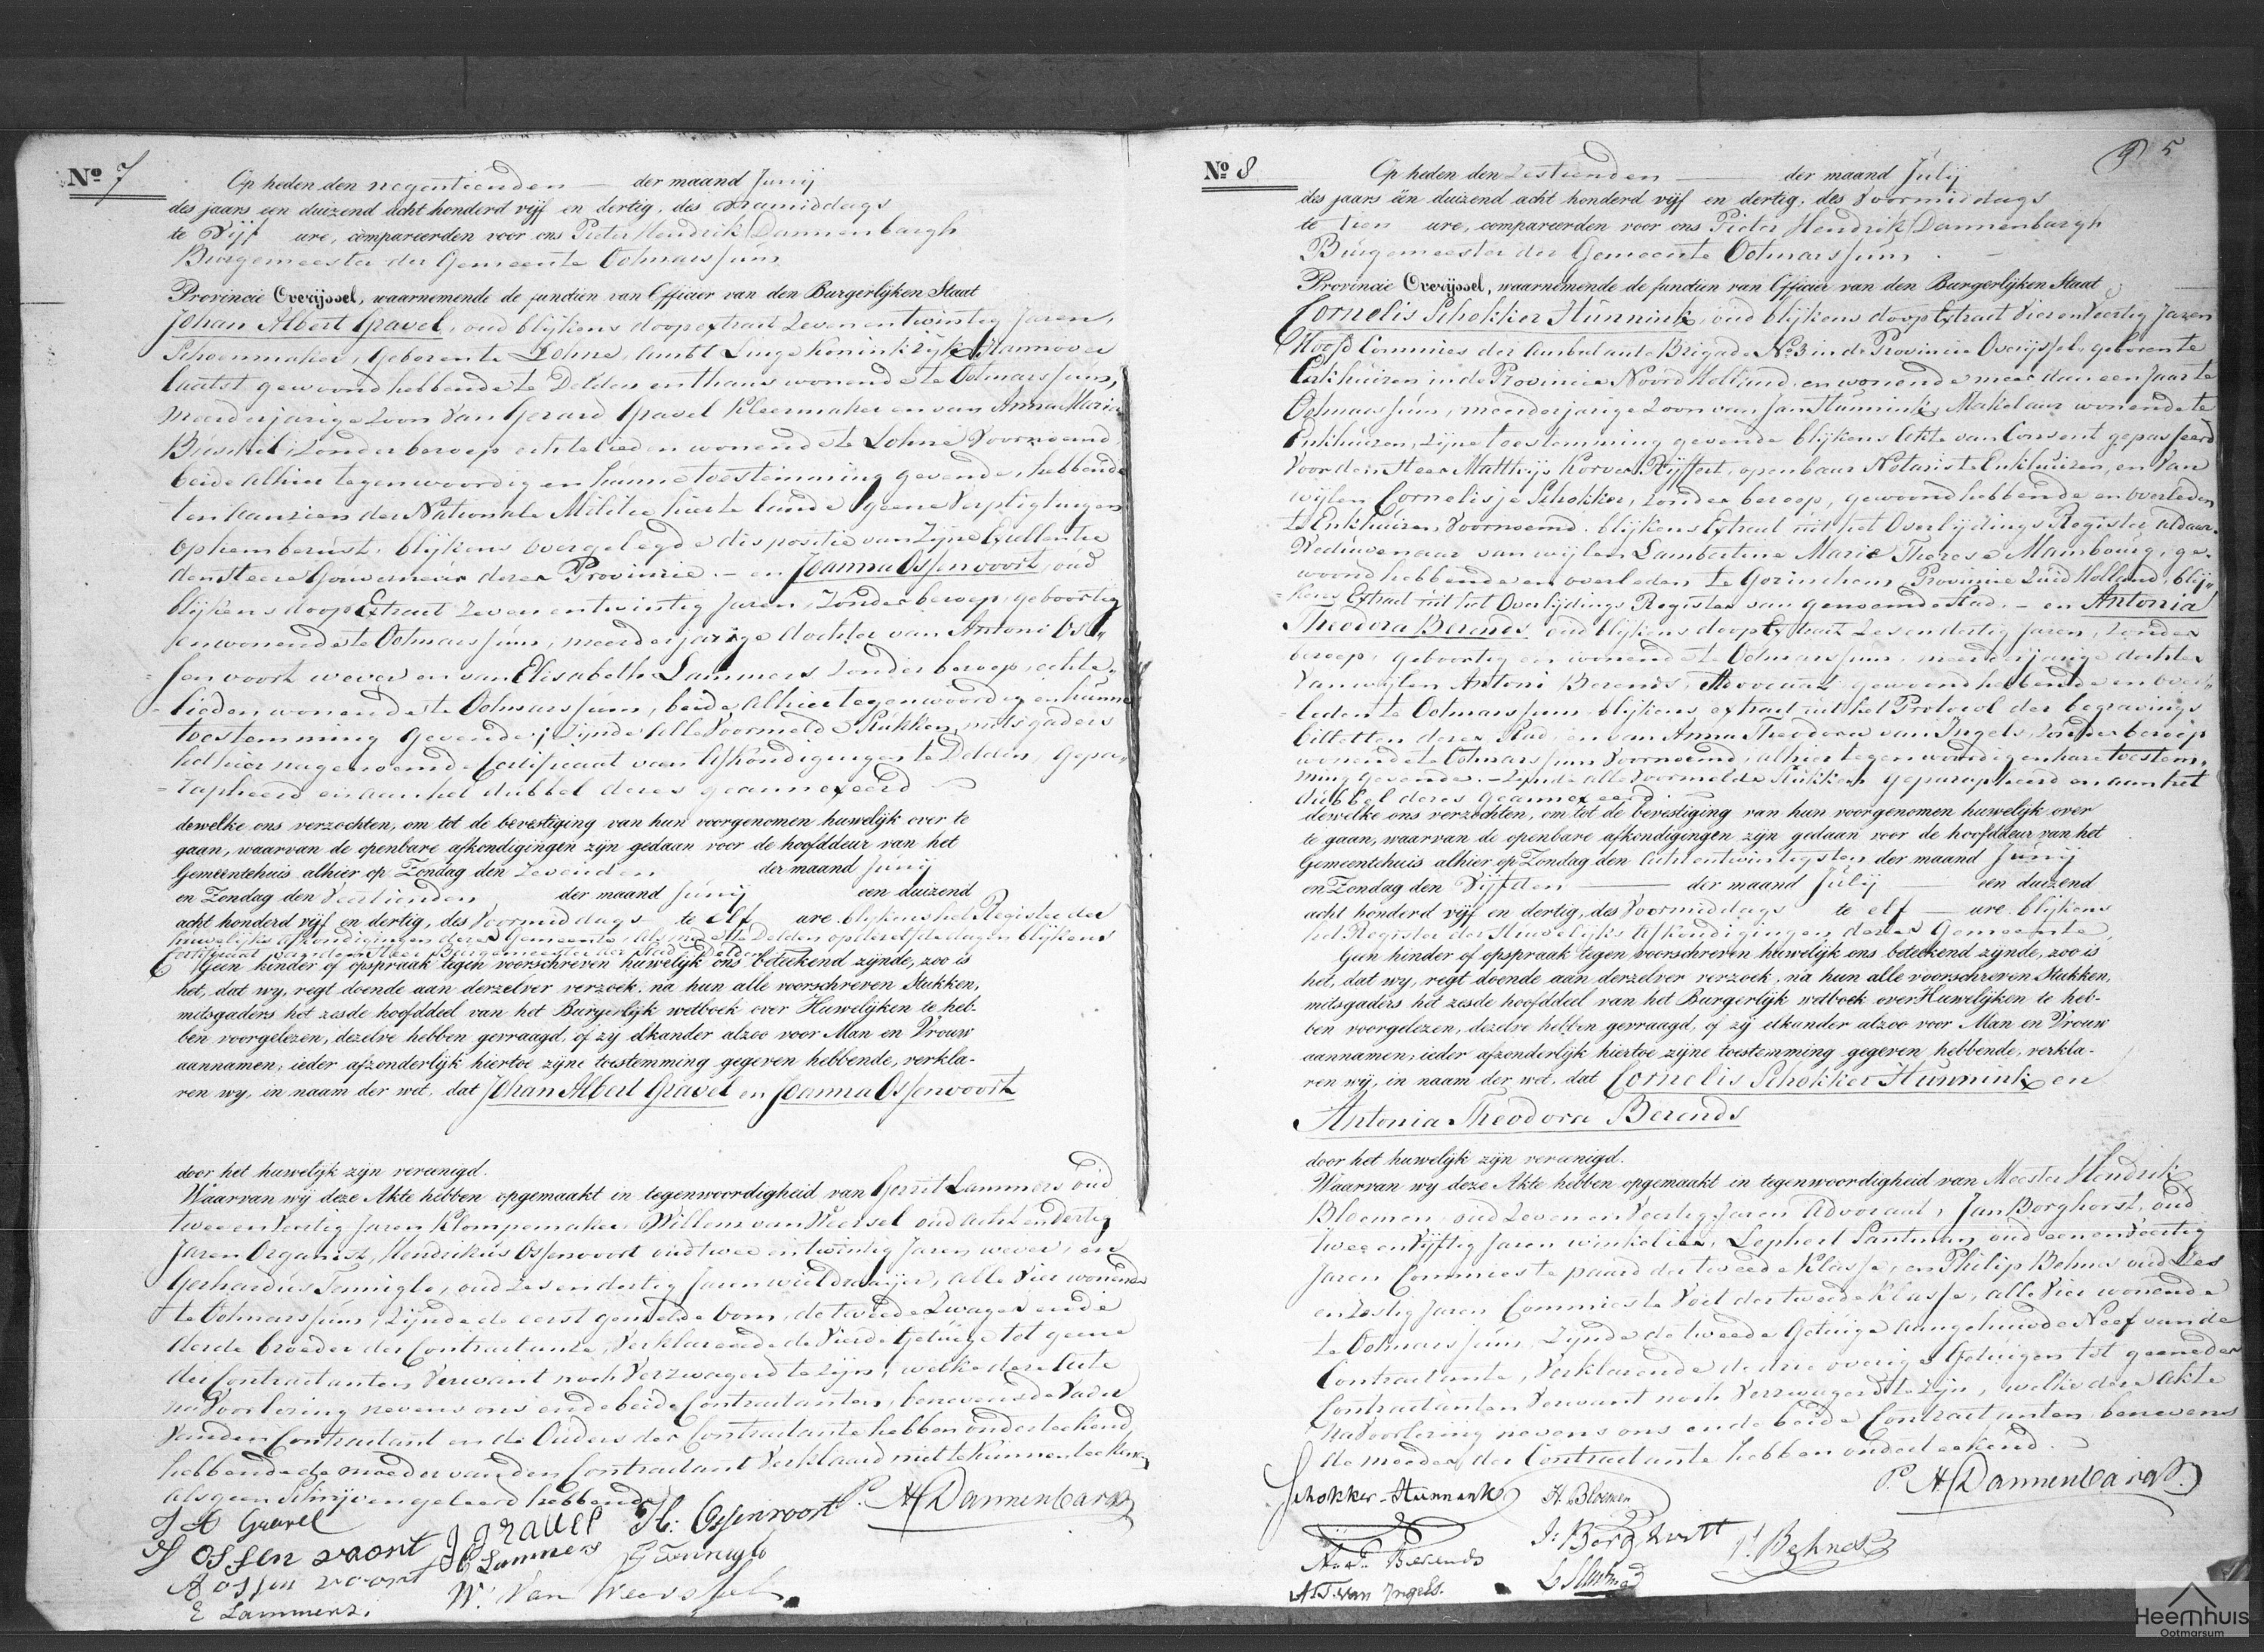 No 7
Op heden den negentienden — der maand Junij
des jaars een duizend acht honderd vijf en dertig, des namiddags
te Vijf ure, compareerden voor ons Pieter Hendrik Dannenbargh
Burgemeester der Gemeente Ootmarssum
Provincie Overijssel, waarnemende de functien van Officier van den Burgerlijken Staat
Johan Albert Gravel, oud blijkens doopextract Zevenentwintig Jaren,
Schoenmaker, Geboren te Lohne, Ambt Linge Koninkrijk Hannover
laatst gewoond hebbende te Delden en thans wonende te Ootmarssum,
meerderjarige Zoon Van Gerard Gravel Kleermaker en van Anna Maria
zonder beroep echtelieden wonende te Lohne Voornoemd
beide alhier tegenwoordig en hunne toestemming gevende, hebbende
ten aanzien der Nationale Militie hier te lande geene Verpligtingen
op hem berust, blijkens overgelegde dispositie van Zijne Excellentie
den Heere Gouverneur dezer Provincie. — en Joanna Ossenvoort, oud
blijkens doop Extract Zevenentwintig Jaren, Zonder beroep, geboortig
en wonende te Ootmarssum, meerderjarige dochter van Antoni Os„
senvoort wever en van Elisabeth Lammers zonder beroep, echte„
lieden wonende te Ootmarssum, beide alhier tegenwoordig en hunne
toestemming gevende; Zijnde alle Voormelde Stukken, mitsgaders
het hier nagenoemde Certificaat van Afkondigingen te Delden, Gepa„
rapheerd en aan het dubbel dezes geannexeerd
dewelke ons verzochten, om tot de bevestiging van hun voorgenomen huwelijk over te
gaan, waarvan de openbare afkondigingen zijn gedaan voor de hoofddeur van het
Gemeentehuis alhier op Zondag den Zevenden der maand Junij
en Zondag den Veertienden der maand Junij een duizend
acht honderd vijf en dertig, des Voormiddags te elf ure blijkens het Register der
huwelijks afkondigingen dezer Gemeente, alsmede te Delden op dezelfde dagen blijkens
Certificaat van den Heer Burgemeester der Stad Delden
Geen hinder of opspraak tegen voorschreven huwelijk ons beteekend zijnde, zoo is
het, dat wy, regt doende aan derzelver verzoek, na hun alle voorschreven Stukken,
mitsgaders het zesde hoofddeel van het Burgerlijk wetboek over Huwelijken te heb-
ben voorgelezen, dezelve hebben gevraagd, of zij elkander alzoo voor Man en Vrouw
aannamen; ieder afzonderlijk hiertoe zijne toestemming gegeven hebbende, verkla-
ren wy, in naam der wet, dat Johan Albert Gravel en Joanna Ossenvoort
door het huwelijk zijn vereenigd.
Waarvan wij deze Akte hebben opgemaakt in tegenwoordigheid van Gerrit Lammers oud
twee en Veertig Jaren Klompemaker, Willem van Weersel oud acht en dertig
Jaren Organist, Hendrikus Ossenvoort oud twee en twintig Jaren wever, en
Gerhardus Tonnigle, oud Zes en dertig Jaren wieldraaijer, alle Vier wonende
te Ootmarssum, Zijnde de eerst gemelde oom, de tweede Zwager en de
derde broeder der Contractante, Verklarende de Vierde Getuige tot geene
der Contractanten Verwant noch Verzwagerd te zijn; welke deze Acte
na Voorlezing nevens ons en de beide Contractanten, benevens de Vader
van den Contractant en de Ouders der Contractante hebben onderteekend,
hebbende de moeder van den Contractant Verklaard niet te kunnen teekenen
als geen Schrijven geleerd hebbende
J A Gravel
J Ossenvoort
J Gravel
H: Ossenvoort
P. H Dannenbargh
A ossen voort
G Lammers
G Tonnigle
E Lammers.
W: Van Weersel
5
No 8
Op heden den Zestienden — der maand Julij
des jaars één duizend acht honderd vijf en dertig, des Voormiddags
te tien ure, compareerden voor ons Pieter Hendrik Dannenbargh
Burgemeester der Gemeente Ootmarssum
Provincie Overijssel, waarnemende de functien van Officier van den Burgerlijken Staat
Cornelis Schokker Hunnink, oud blijkens doop Extract Vierenveertig Jaren
Hoofd Commies der Ambulante Brigade No 3 in de Provincie Overijssel, geboren te
Enkhuizen in de Provincie Noord Holland, en wonende meer dan een Jaar te
Ootmarssum, meerderjarige Zoon van Jan Hunnink, Makelaar wonende te
Enkhuizen, zijne toestemming gevende blijkens Akte van Consent gepasseerd
Voor den Heer Matthijs Korver openbaar Notaris te Enkhuizen, en Van
wijlen Cornelisje Schokker, zonder beroep, gewoond hebbende en overleden
te Enkhuizen, Voornoemd, blijkens Extract uit het Overlijdings Register aldaar.
Weduwenaar van wijlen Lambertine Marie Therese Mambourg, ge„
woond hebbende en overleden te Gorinchem, Provincie Zuid Holland, blij„
kens Extract uit het Overlijdings Register van genoemde Stad. — en Antonia
Theodora Berends oud blijkens doop Extract Zesendertig Jaren, zonder
beroep, geboortig en wonende te Ootmarssum, meerderjarige dochter
Van wijlen Antoni Berends, Advocaat gewoond hebbende en over„
leden te Ootmarssum blijkens extract uit het Protocol der begravings
billetten dezer Stad, en van Anna Theodora van Ingels, zonder beroep
wonende te Ootmarssum Voornoemd, alhier tegenwoordig en hare toestem„
ming gevende. — Zijnde alle voormelde Stukken geparapheerd en aan het
dubbel dezes geannexeerd. —
dewelke ons verzochten, om tot de bevestiging van hun voorgenomen huwelijk over
te gaan, waarvan de openbare afkondigingen zijn gedaan voor de hoofddeur van het
Gemeentehuis alhier op Zondag den Achtentwintigsten der maand Junij
en Zondag den Vijfden — der maand Julij — een duizend
acht honderd vijf en dertig, des Voormiddags te elf — ure blijkens
het Register der Huwelijks Afkondigingen dezer Gemeente,
Geen hinder of opspraak tegen voorschreven huwelijk ons beteekend zijnde, zoo is
het, dat wy, regt doende aan derzelver verzoek, na hun alle voorschreven Stukken,
mitsgaders het zesde hoofddeel van het Burgerlijk wetboek over Huwelijken te heb-
ben voorgelezen, dezelve hebben gevraagd, of zij elkander alzoo voor Man en Vrouw
aannamen; ieder afzonderlijk hiertoe zijne toestemming gegeven hebbende, verkla-
ren wij, in naam der wet, dat Cornelis Schokker Hunnink en
Antonia Theodora Berends
door het huwelijk zijn vereenigd.
Waarvan wy deze Akte hebben opgemaakt in tegenwoordigheid van Meester Hendrik
Bloemen oud Zeven en Veertig Jaren Advocaat, Jan Borghorst, oud
twee en Vijftig Jaren winkelier, Lephert Santman oud een en Veertig
Jaren Commies te paard der tweede Klasse, en Philip Behnes oud Zes
en Zestig Jaren Commies te Voet der tweede Klasse, alle Vier wonende
te Ootmarssum, Zijnde de tweede Getuige aangehuwde Neef van de
Contractante, Verklarende de drie overige Getuigen tot geene der
Contractanten Verwant noch Verzwagerd te Zijn, welke deze Akte
na Voorlezing nevens ons en de beide Contractanten benevens
de moeder der Contractante hebben onderteekend.
Schokker-Hunnink
H. Bloemen
P. H Dannenbargh.
J: Borghorst
P. Behnes
Berends
L Santman
A T. van Ingels.
Heemhuis
Ootmarsum